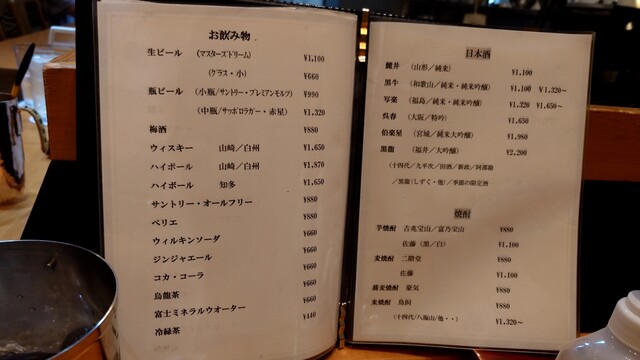 お飲み物
生ビール (マスターズドリーム) ¥1,100
(グラス・小) ¥660
瓶ビール (小瓶/サントリー・プレミアンモルツ) ¥990
(中瓶/サッポロラガー・赤星) ¥1,320
梅酒 ¥880
ウィスキー 山崎/白州 ¥1,650
ハイボール 山崎/白州 ¥1,870
ハイボール 知多 ¥1,650
サントリー・オールフリー ¥880
ペリエ ¥880
ウィルキンソーダ ¥660
ジンジャエール ¥660
コカ・コーラ ¥660
烏龍茶 ¥660
富士ミネラルウオーター ¥440
冷緑茶
日本酒
麓井 (山形/純米) ¥1,100
黒牛 (和歌山/純米・純米吟醸) ¥1,100 ¥1,320~
写楽 (福島/純米・純米吟醸) ¥1,320 ¥1,650~
呉春 (大阪/特吟) ¥1,650
伯楽星 (宮城/純米大吟醸) ¥1,980
黒龍 (福井/大吟醸) ¥2,200
(十四代/九平次/田酒/新政/阿部勘
/黒龍(しずく・他)/季節の限定酒
焼酎
芋焼酎 吉兆宝山/富乃宝山 ¥880
佐藤(黒/白) ¥1,100
麦焼酎 二階堂 ¥880
佐藤 ¥1,100
蕎麦焼酎 豪気 ¥880
米焼酎 鳥飼 ¥880
(十四代/八海山/他・・) ¥1,320~